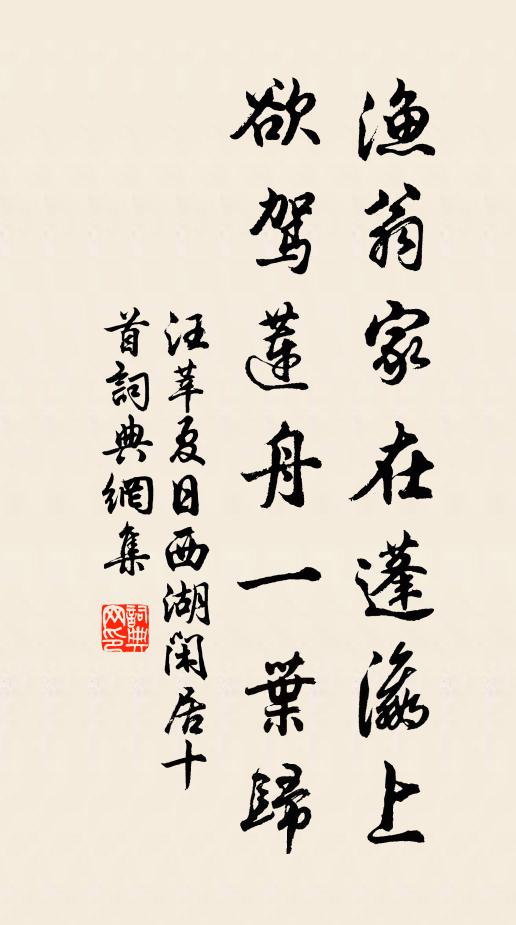 漁翁家在蓬瀛上
欲駕蓮舟一葉歸
汪莘夏日西湖閑居十
首詞典網集
詞典
网印